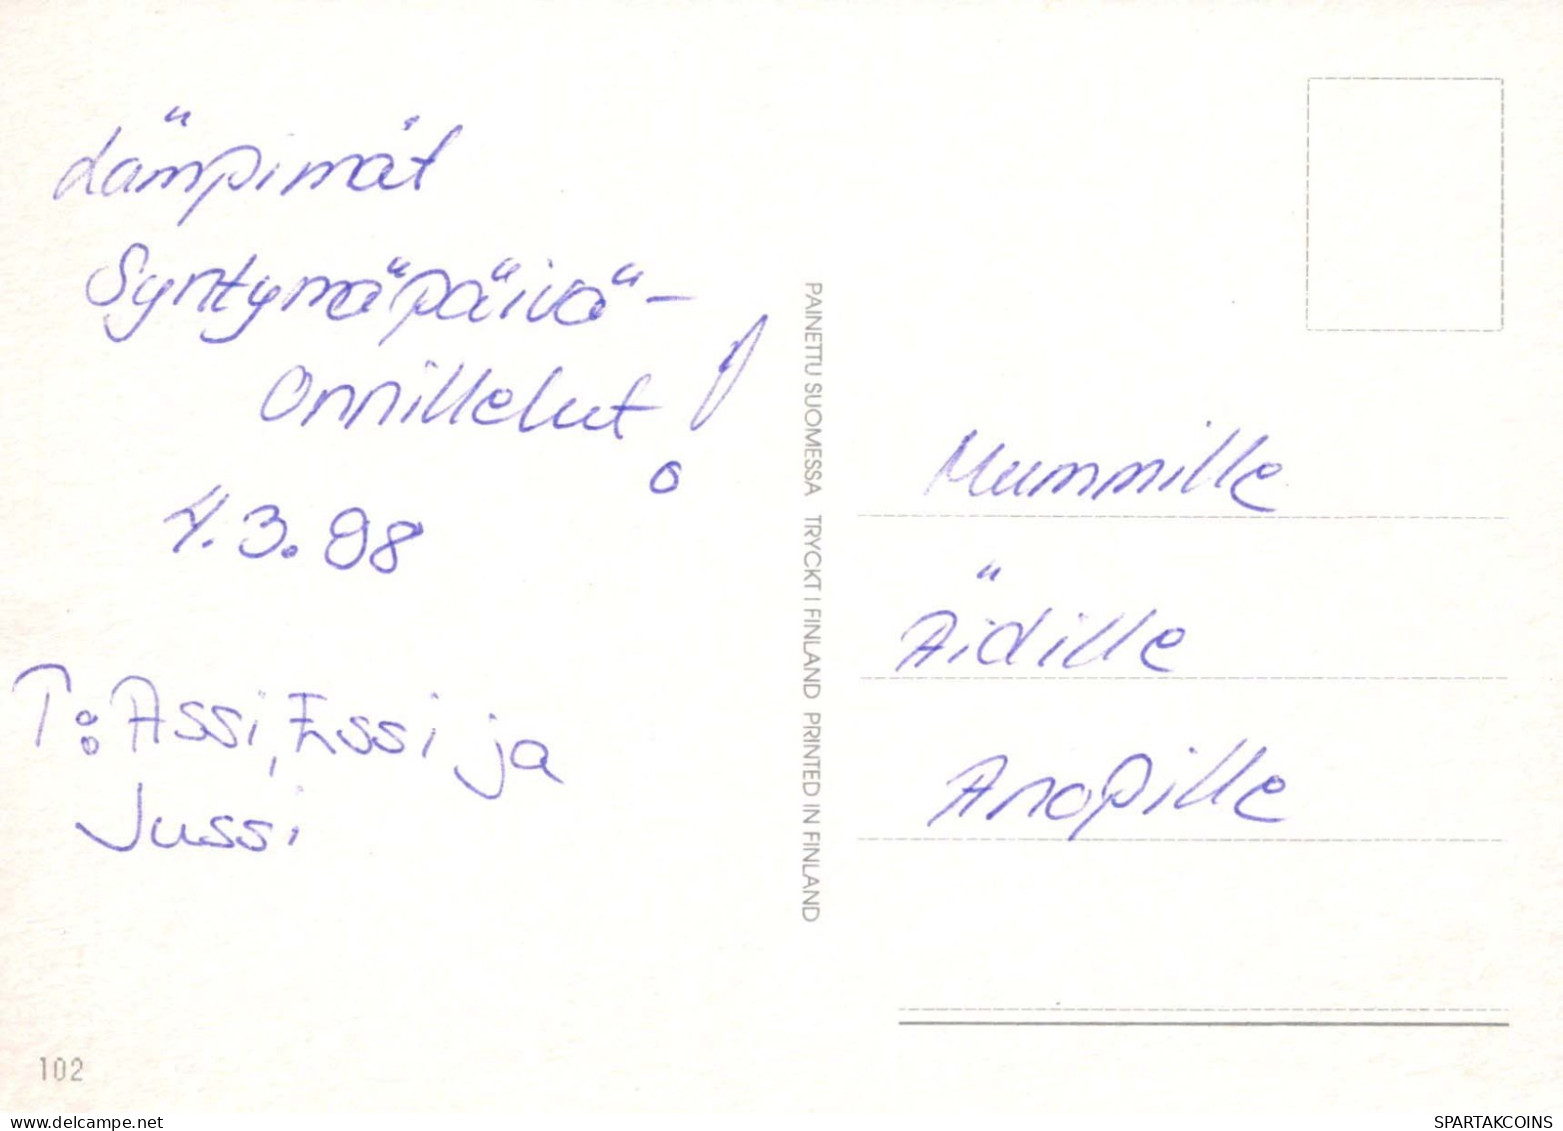 Lämpimät
Syntymäpäivä-
Onnillelut!
4.3.98
T: Assi, Essi ja
Jussi
102
PAINETTU SUOMESSA TRYCKT I FINLAND PRINTED IN FINLAND
Mummille
Äidille
Anopille
delcampe.net
SPARTAKCOINS